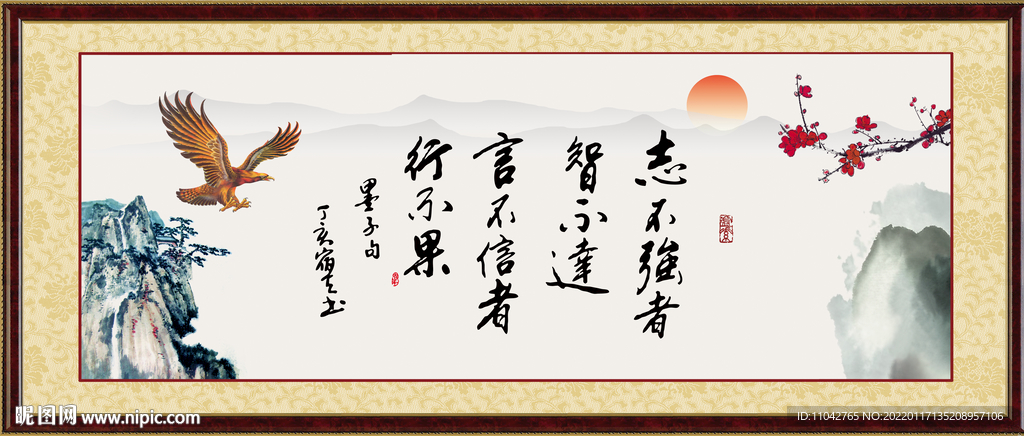 志不强者
智不達
言不信者
行不果
墨子句
丁亥
书
昵图网 www.nipic.com
ID:11042765 NO:20220117135208957106